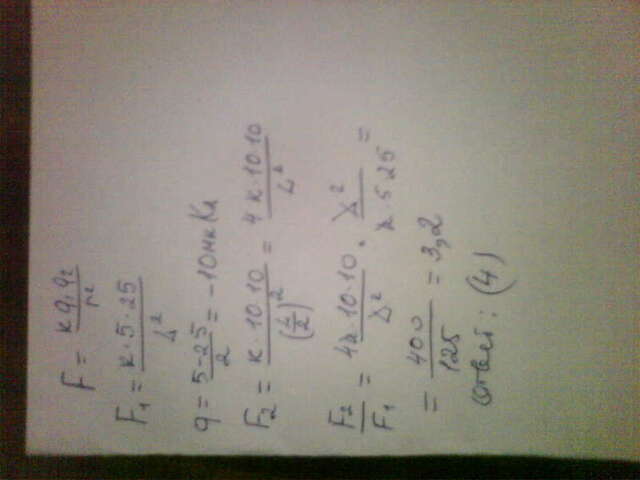 F = кq₁q₂/r²
F₁ = к·5·25/L²
q = 5-25/2 = -10мкКл
F₂ = к·10·10/(L/2)² = 4к·10·10/L²
F₂/F₁ = 4к·10·10/L² · L²/к·5·25 =
= 400/125 = 3,2
Ответ: (4)